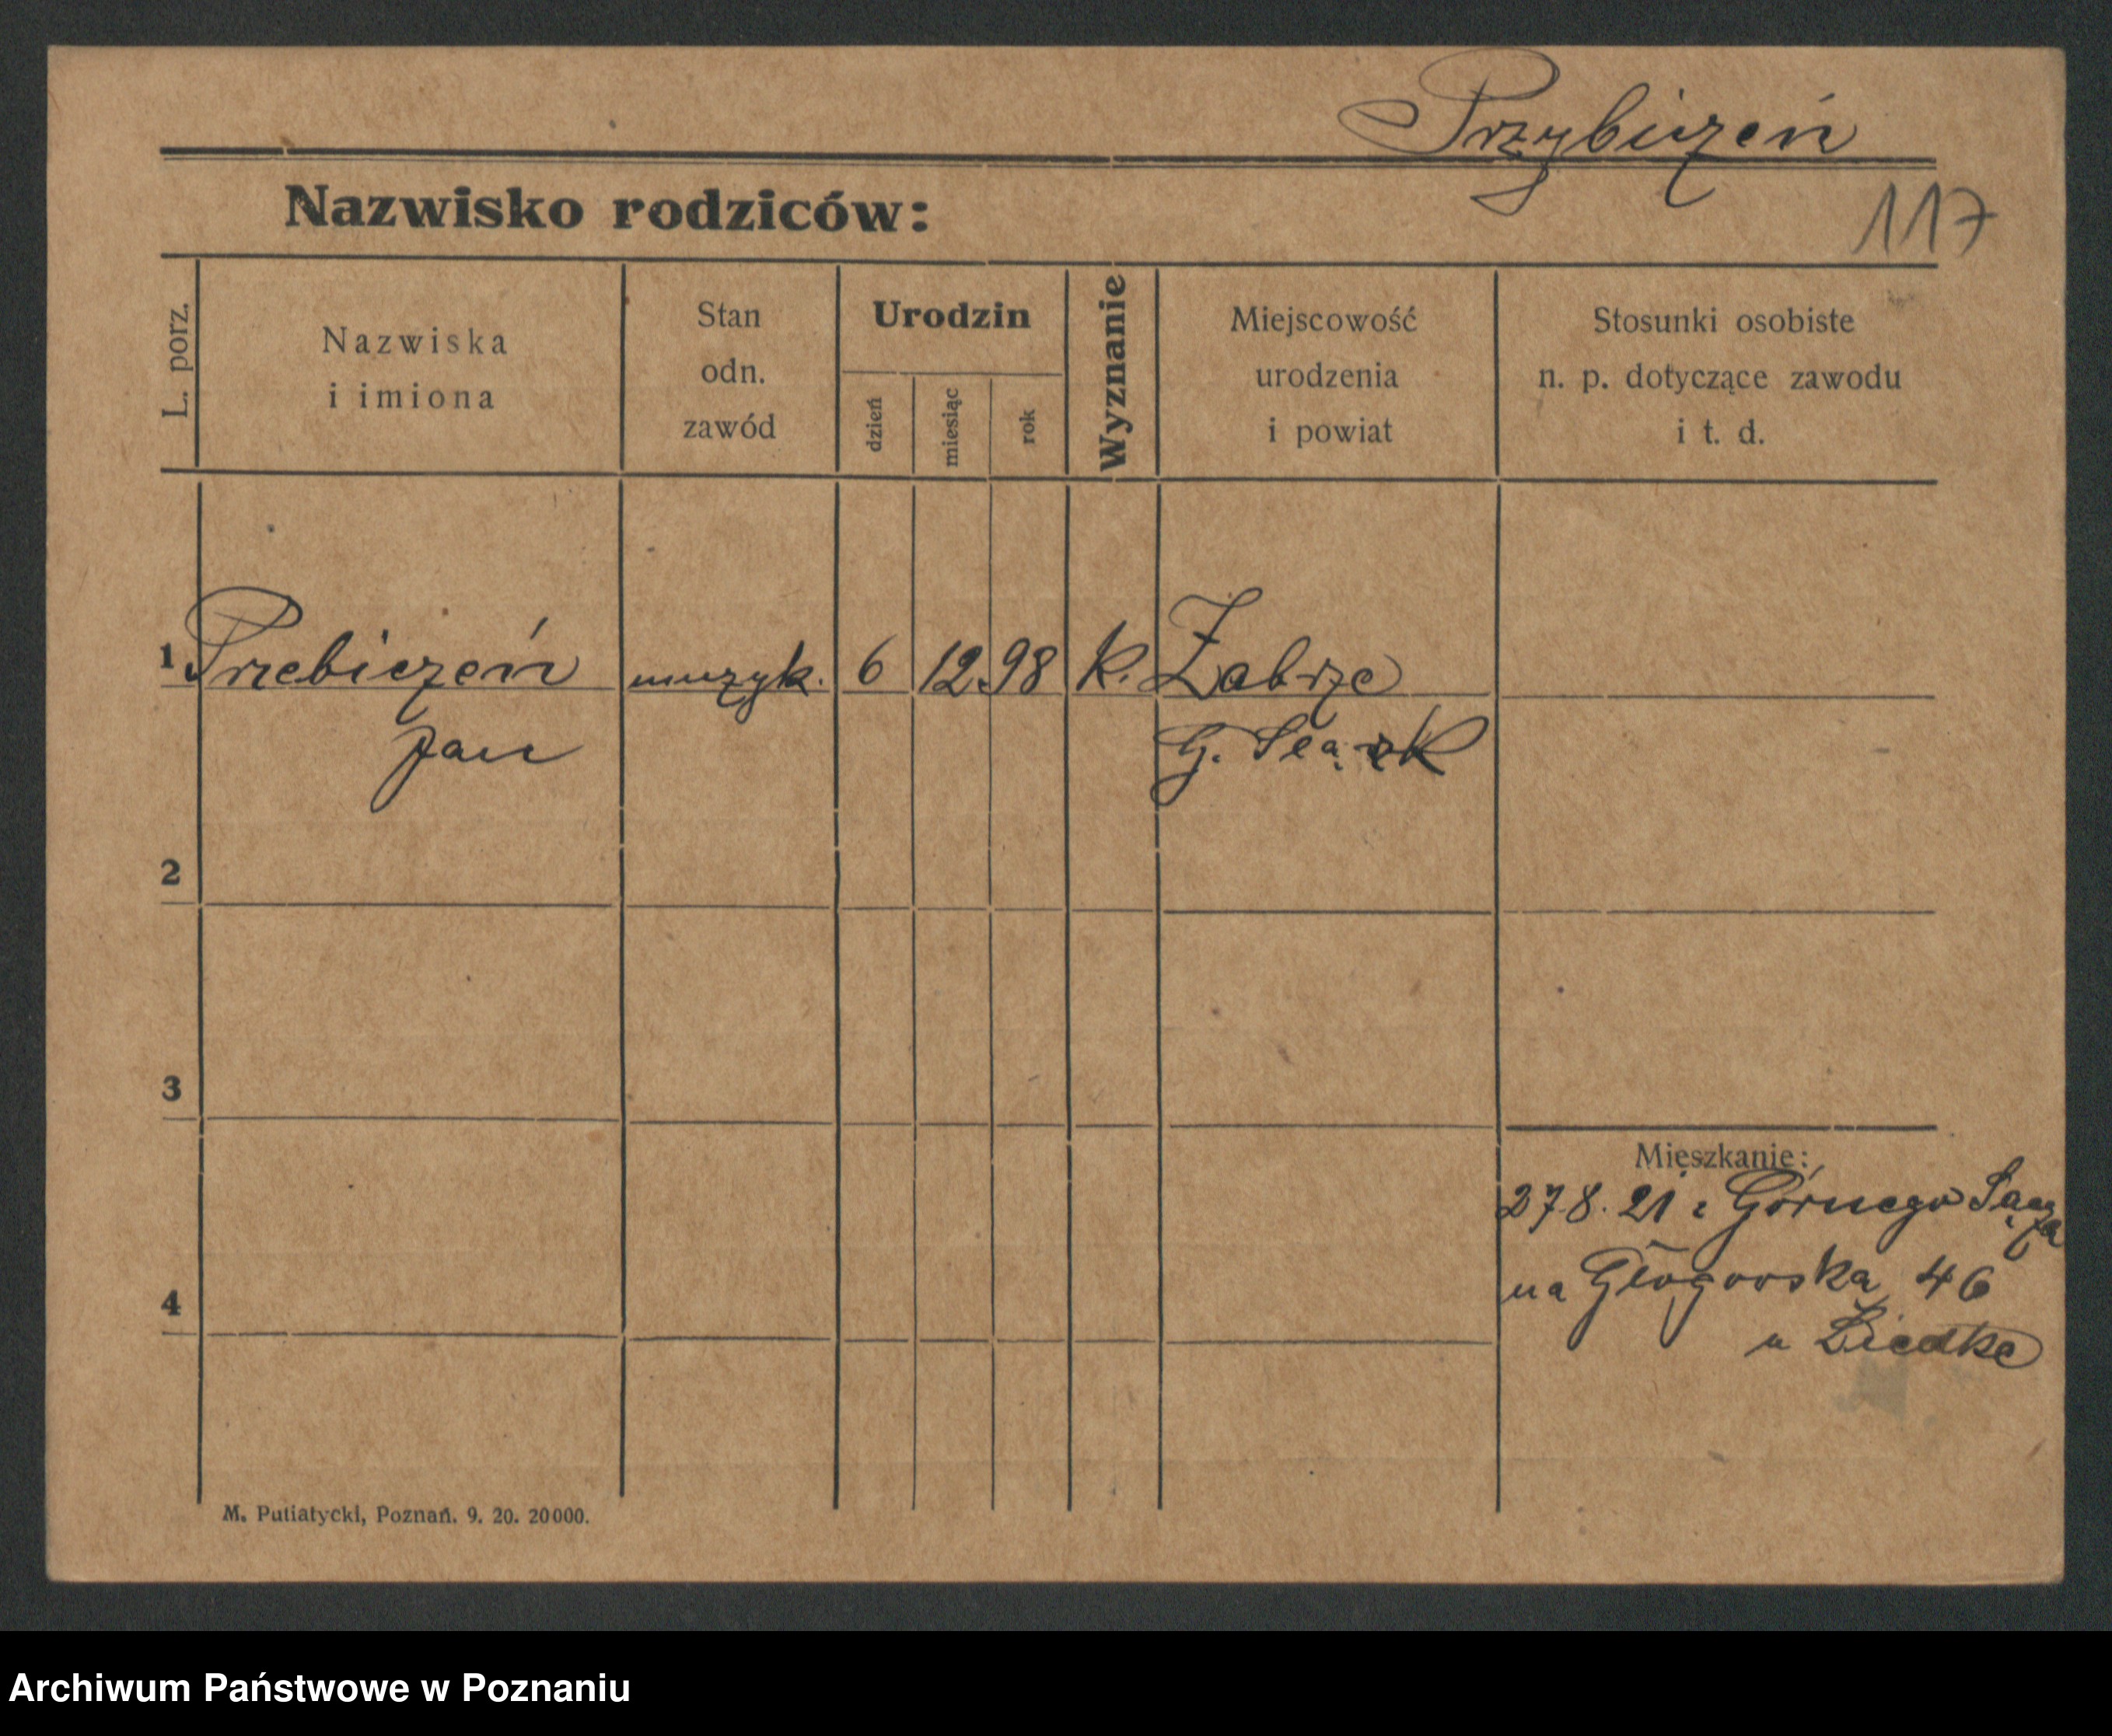 Przybiczeń
Nazwisko rodziców:
117
L. porz.
Nazwiska
i imiona
Stan
odn.
zawód
Urodzin
dzień
miesiąc
rok
Wyznanie
Miejscowość
urodzenia
i powiat
Stosunki osobiste
n. p. dotyczące zawodu
i t. d.
1 Przebiczeń muzyk. 6 12 98 k. Zabrze
Jan G. Sląsk
2
3
Mieszkanie:
27.8.21 z Górnego
na Głogowska 46
4
u Liedke
M. Putiatycki, Poznań. 9. 20. 20000.
Archiwum Państwowe w Poznaniu